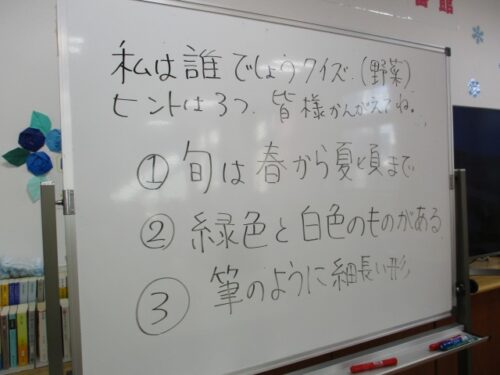 私は誰でしょうクイズ.(野菜)
ヒントは3つ. 皆様かんがえてね。
① 旬は春から夏頃まで
② 緑色と白色のものがある
③ 筆のように細長い形